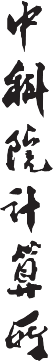 中科院计算所